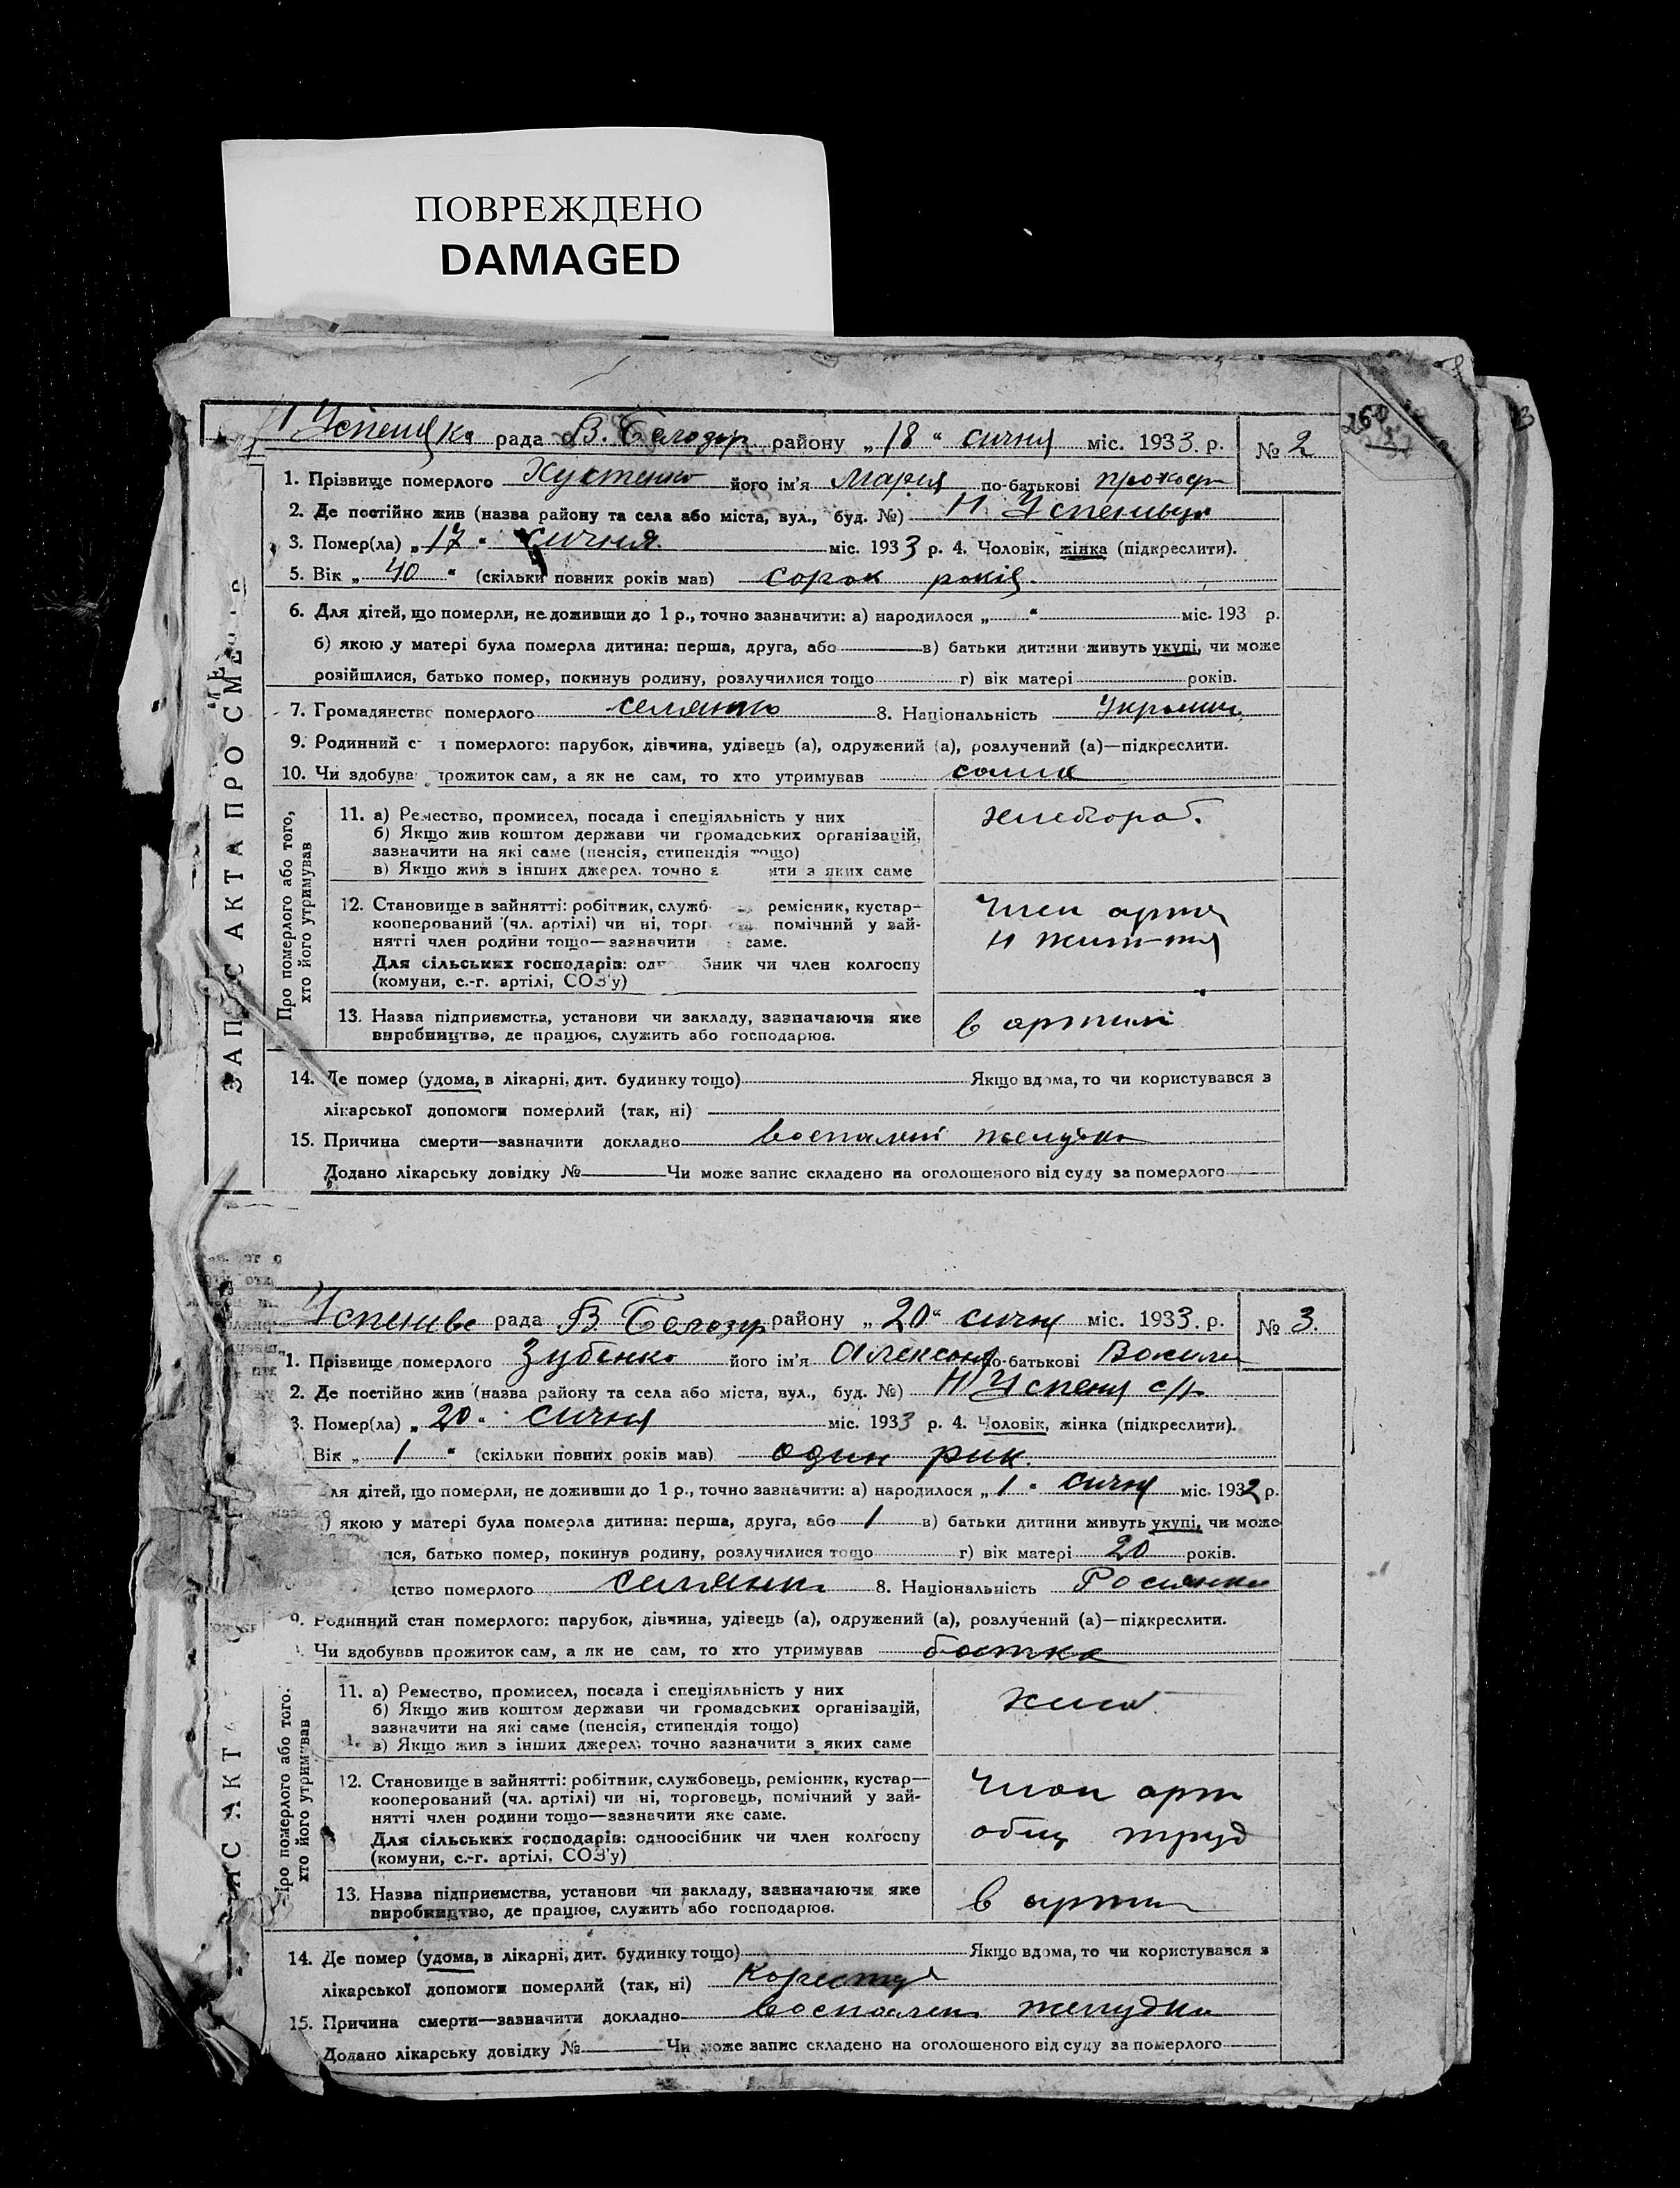 ПОВРЕЖДЕНО
DAMAGED
рада В. Белозер району „18“ сичня міс. 1933. р. № 2
1. Прізвище померлого Хустенко його ім'я Мария по-батькові прокоф
2. Де постійно жив (назва району та села або міста, вул., буд. №) Н
3. Помер(ла) „17“ сичня міс. 1933 р. 4. Чоловік, жінка (підкреслити).
5. Вік „40“ (скільки повних років мав) сорок років.
6. Для дітей, що померли, не доживши до 1 р., точно зазначити: а) народилося „ “ міс. 193 р.
б) якою у матері була померла дитина: перша, друга, або в) батьки дитини живуть укупі, чи може
розійшлися, батько помер, покинув родину, розлучилися тощо г) вік матері років.
7. Громадянство померлого селянка 8. Національність
9. Родинний с н померлого: парубок, дівчина, удівець (а), одружений (а), розлучений (а)—підкреслити.
10. Чи здобува прожиток сам, а як не сам, то хто утримував сама
ЗАПИС АКТА ПРО СМЕ
Про померлого або того, хто його утримував
11. а) Ремество, промисел, посада і спеціяльність у них хлебороб.
б) Якщо жив коштом держави чи громадських організацій,
зазначити на які саме (пенсія, стипендія тощо)
в) Якщо жив з інших джерел. точно з ити з яких саме
12. Становище в зайнятті: робітник, служб ремісник, кустар— Член арти
кооперований (чл. артілі) чи ні, торг помічний у зай- Н життя
нятті член родини тощо—зазначити саме.
Для сільських господарів: одн бник чи член колгоспу
(комуни, с.-г. артілі, СОЗ'у)
13. Назва підприємства, установи чи закладу, зазначаючи яке в артилі
виробництво, де працює, служить або господарює.
14. Де помер (удома, в лікарні, дит. будинку тощо) Якщо вдома, то чи користувався з
лікарської допомоги померлий (так, ні)
15. Причина смерти—зазначити докладно воспалені желудка
Додано лікарську довідку № Чи може запис складено на оголошеного від суду за померлого
рада В Белозер району „20“ сичня міс. 1933. р. № 3.
1. Прізвище померлого Зубенко його ім'я Олександ по-батькові Васили
2. Де постійно жив (назва району та села або міста, вул., буд. №) Н Успеня с/р
3. Помер(ла) „20“ сичня міс. 1933 р. 4. Чоловік, жінка (підкреслити).
Вік „1“ (скільки повних років мав) один рик.
ля дітей, що померли, не доживши до 1 р., точно зазначити: а) народилося „1“ сичня міс. 1932 р.
) якою у матері була померла дитина: перша, друга, або 1 в) батьки дитини живуть укупі, чи може
лся, батько помер, покинув родину, розлучилися тощо г) вік матері 20 років.
дство померлого селянин 8. Національність
9. Родинний стан померлого: парубок, дівчина, удівець (а), одружений (а), розлучений (а)—підкреслити.
Чи здобував прожиток сам, а як не сам, то хто утримував батько
ИС АКТ
Про померлого або того, хто його утримував
11. а) Ремество, промисел, посада і спеціяльність у них хлеб
б) Якщо жив коштом держави чи громадських організацій,
зазначити на які саме (пенсія, стипендія тощо)
в) Якщо жив з інших джерел: точно зазначити з яких саме
12. Становище в зайнятті: робітник, службовець, ремісник, кустар— Член арт
кооперований (чл. артілі) чи ні, торговець, помічний у зай- общ труд
нятті член родини тощо—зазначити яке саме.
Для сільських господарів: одноосібник чи член колгоспу
(комуни, с.-г. артілі, СОЗ'у)
13. Назва підприємства, установи чи закладу, зазначаючи яке в арти
виробництво, де працює, служить або господарює.
14. Де помер (удома, в лікарні, дит. будинку тощо) Якщо вдома, то чи користувався з
лікарської допомоги померлий (так, ні) Користув
15. Причина смерти—зазначити докладно воспален желудка
Додано лікарську довідку № Чи може запис складено на оголошеного від суду за померлого